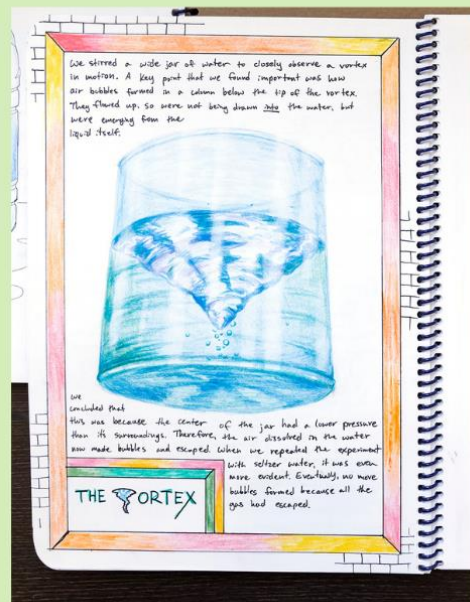 We stirred a wide jar of water to closely observe a vortex
in motion. A key point that we found important was how
air bubbles formed in a column below the tip of the vortex.
They flowed up, so were not being drawn into the water, but
were emerging from the
liquid itself.
We
concluded that
this was because the center of the jar had a lower pressure
than its surroundings. Therefore, the air dissolved in the water
now made bubbles and escaped. When we repeated the experiment
with seltzer water, it was even
more evident. Eventually, no more
bubbles formed because all the
gas had escaped.
THE VORTEX